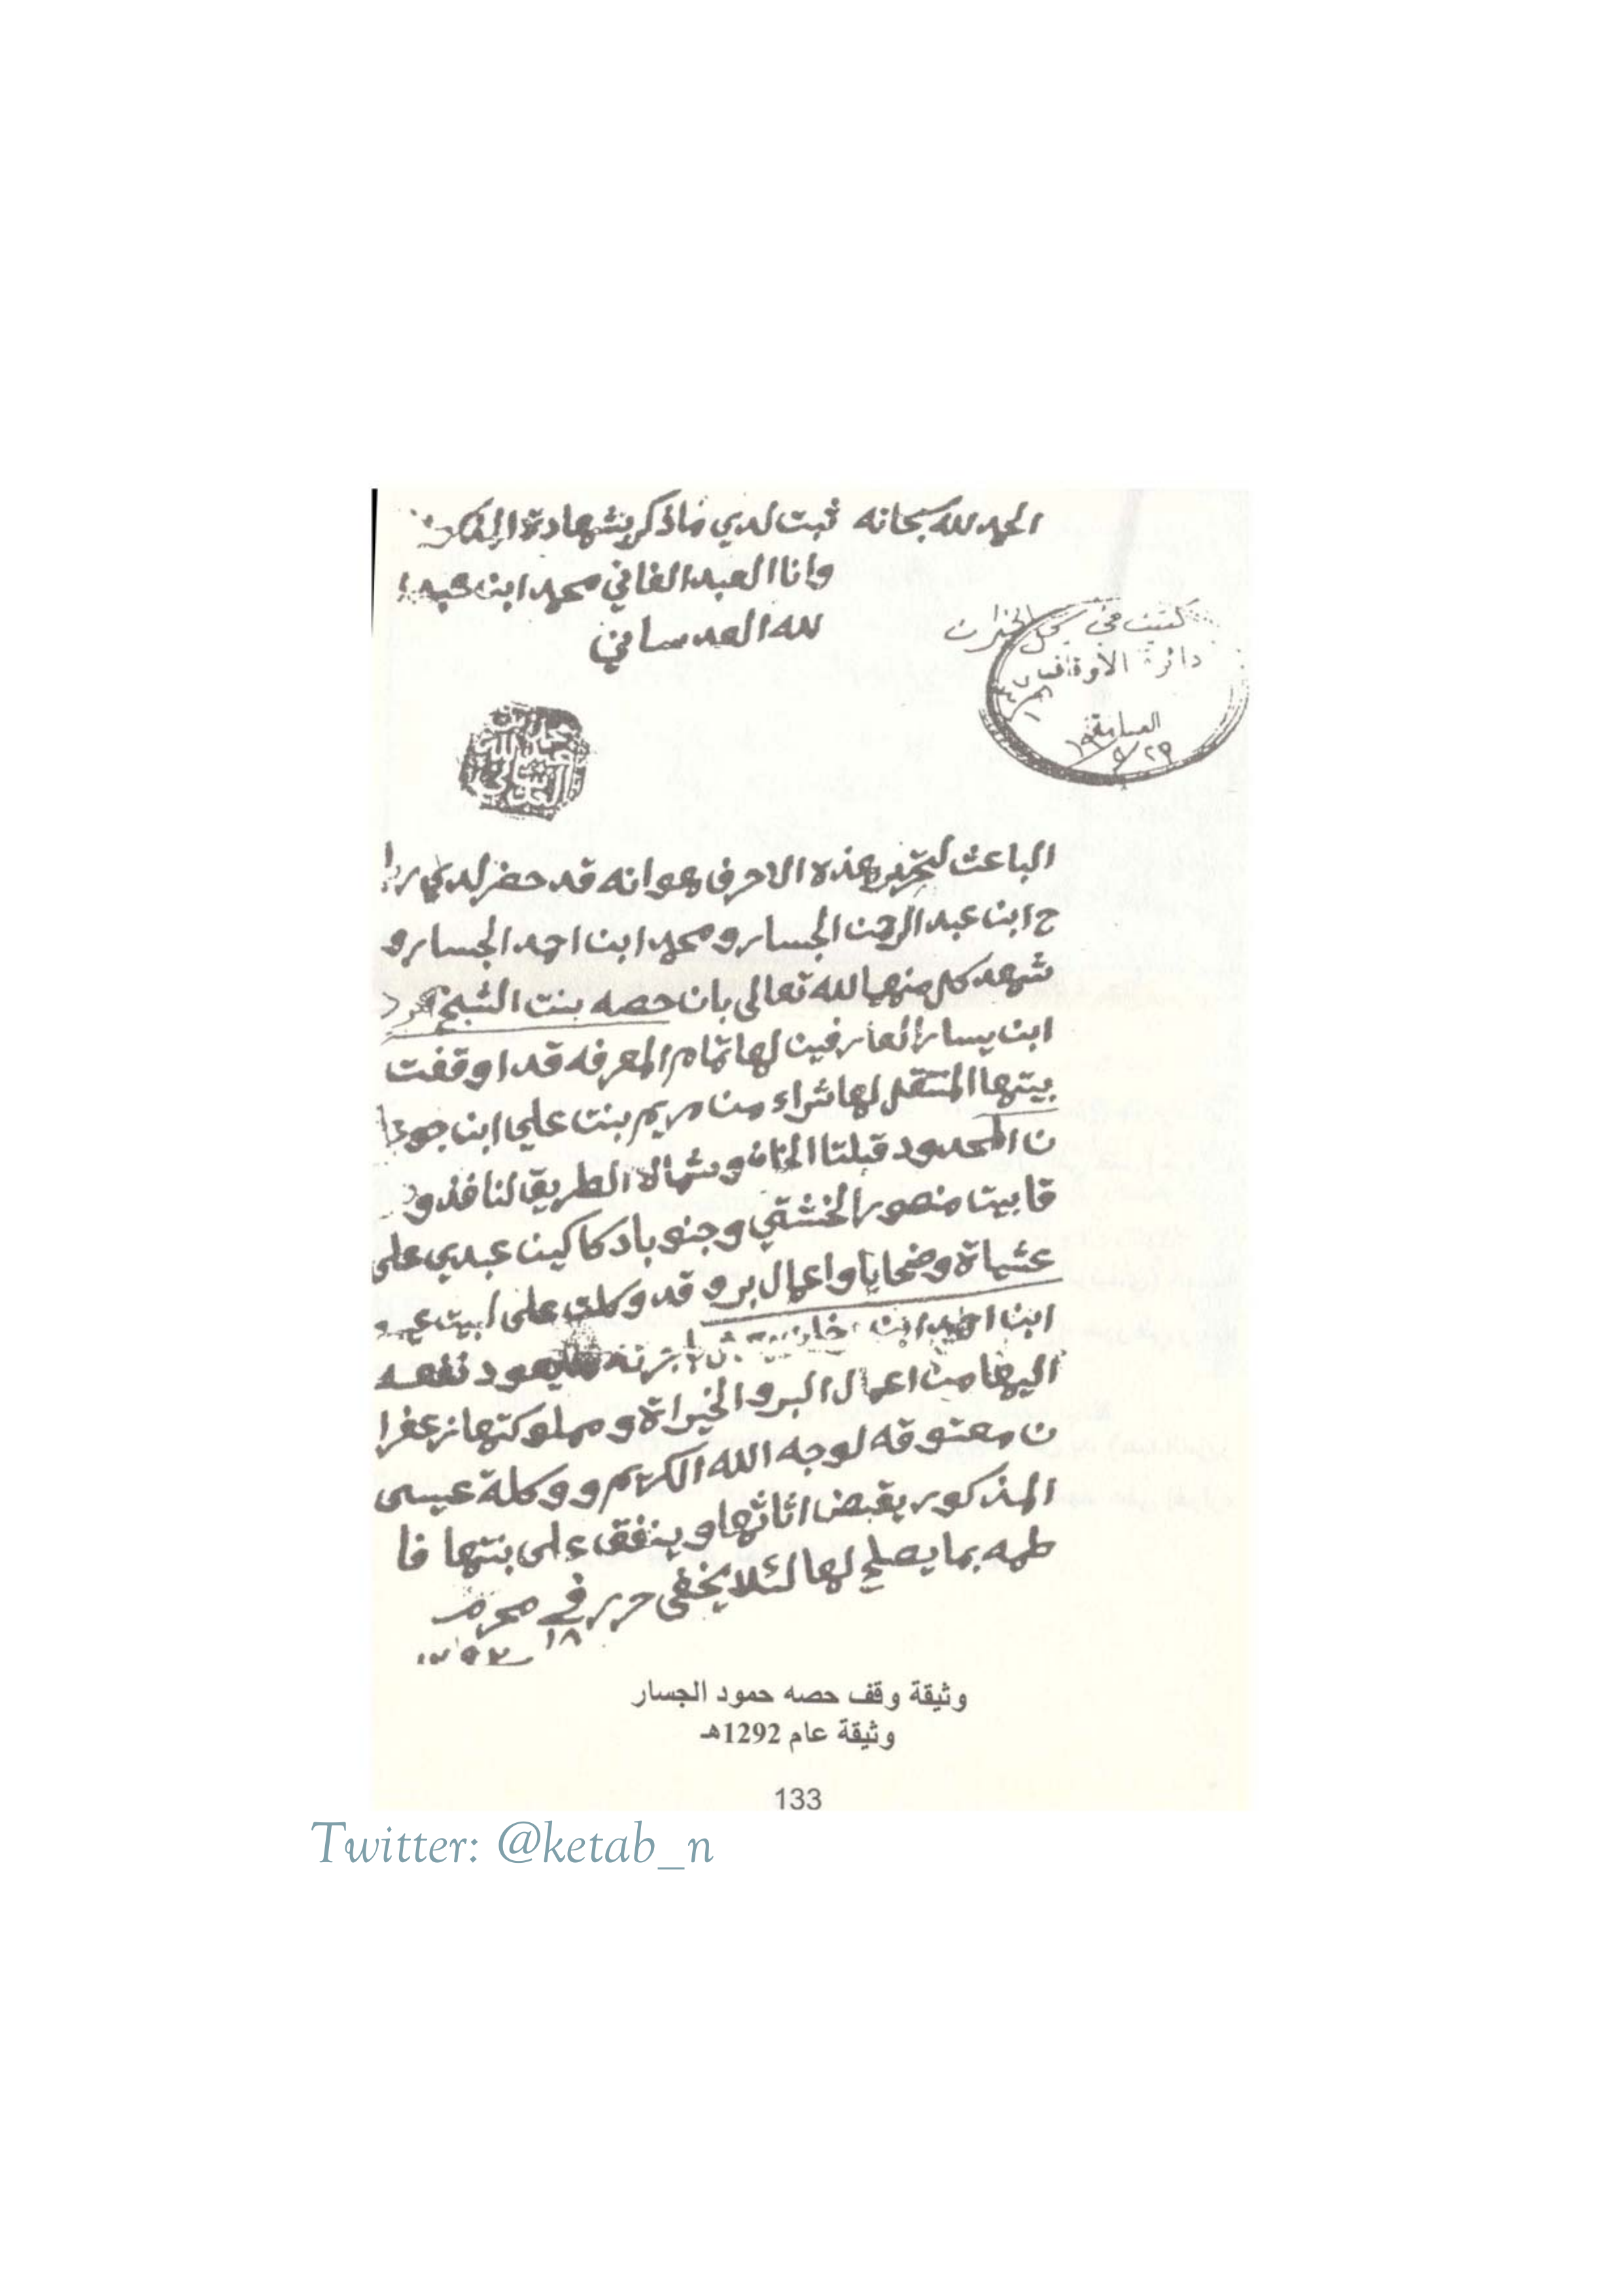 الحمد لله سبحانه ثبت لدي ماذكر بشهادة المذكورين
وانا العبد الفاني محمد ابن عبدا
لله العدساني
كتبت في سجل الخيرات
دائرة الأوقاف
العامة
الباعث لتحرير هذه الاحرف هو انه قد حضر لدي ربا
ح ابن عبد الرحمن الجسار و محمد ابن احمد الجسار و
شهد كل منهما لله تعالى بان حصه بنت الشيخ حمود
ابن يسار العارفين لها تمام المعرفه قد اوقفت
بيتها المنتقل لها شراء من مريم بنت علي ابن جوعا
ن المحدود قبلتا الخان وشمالا الطريق النافذ و
قا بيت منصور الخشتي و جنوبا دكاكين عبدي على
عشياة وضحايا واعمال بر و قد وكلت على البيت عيسى
ابن احمد ابن
اليها من اعمال البر و الخيراة و مملوكتها زعفرا
ن معتوقه لوجه الله الكريم و وكلة عيسى
المذكور يقبض اثاثها و ينفق على بنتها فا
طمه بما يصلح لها لئلا يخفى حرر في محرم
١٨ ١٢٩٢
وثيقة وقف حصه حمود الجسار
وثيقة عام 1292هـ
133
Twitter: @ketab_n